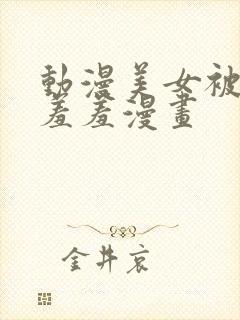 動漫美女被
羞羞漫畫
金井哀